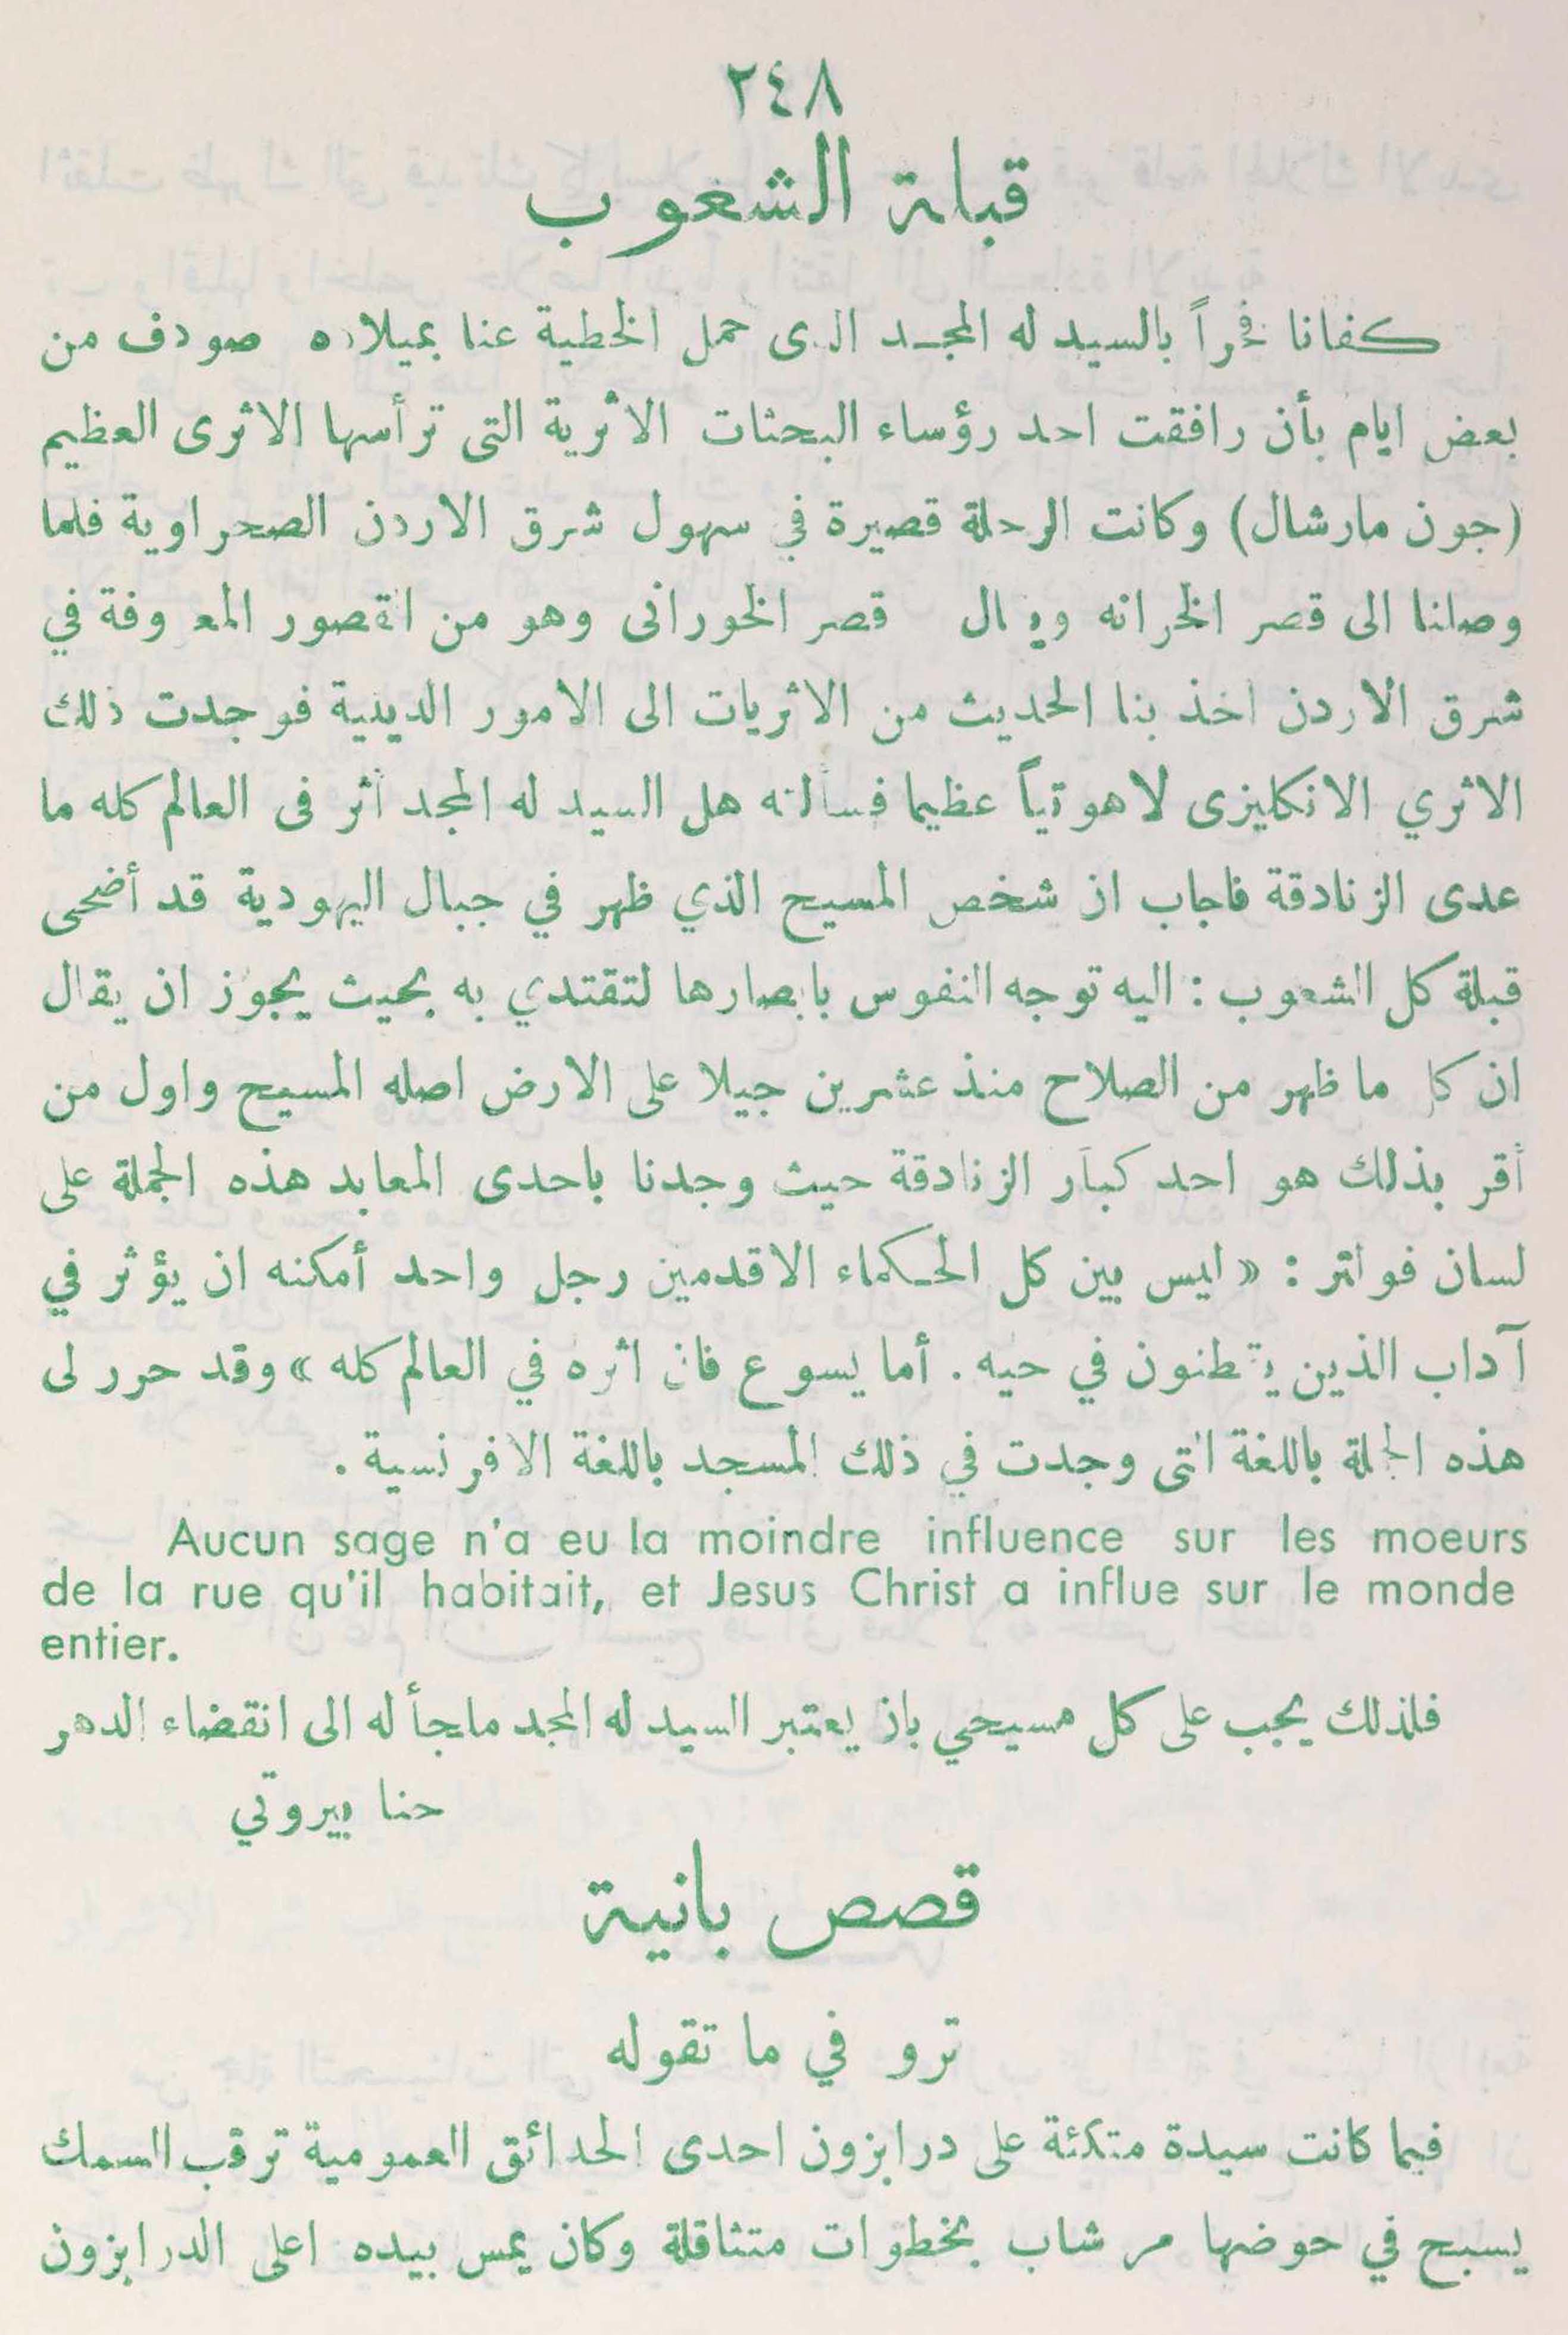 ٢٤٨
قبلة الشعوب
كفانا فخراً بالسيد له المجد الذى حمل الخطية عنا بميلاده صودف من
بعض ايام بأن رافقت احد رؤساء البحثات الاثرية التى ترأسها الاثرى العظيم
(جون مارشال) وكانت الرحلة قصيرة في سهول شرق الاردن الصحراوية فلما
وصلنا الى قصر الخرانه ويقال قصر الخورانى وهو من القصور المعروفة في
شرق الاردن اخذ بنا الحديث من الاثريات الى الامور الدينية فوجدت ذلك
الاثري الانكليزى لاهوتياً عظيما فسألته هل السيد له المجد أثر فى العالم كله ما
عدى الزنادقة فاجاب ان شخص المسيح الذي ظهر في جبال اليهودية قد أضحى
قبلة كل الشعوب : اليه توجه النفوس بابصارها لتقتدي به بحيث يجوز ان يقال
ان كل ما ظهر من الصلاح منذ عشرين جيلا على الارض اصله المسيح واول من
أقر بذلك هو احد كبار الزنادقة حيث وجدنا باحدى المعابد هذه الجملة على
لسان فولتر : « ليس بين كل الحكماء الاقدمين رجل واحد أمكنه ان يؤثر في
آداب الذين يقطنون في حيه . أما يسوع فان اثره في العالم كله » وقد حرر لى
هذه الجملة باللغة التى وجدت في ذلك المسجد باللغة الافرنسية .
Aucun sage n'a eu la moindre influence sur les moeurs
de la rue qu'il habitait, et Jesus Christ a influe sur le monde
entier.
فلذلك يجب على كل مسيحي بان يعتبر السيد له المجد ملجأ له الى انقضاء الدهر
حنا بيروتي
قصص بانية
ترو في ما تقوله
فيما كانت سيدة متكئة على درابزون احدى الحدائق العمومية ترقب السمك
يسبح في حوضها مر شاب بخطوات متثاقلة وكان يمس بيده اعلى الدرابزون